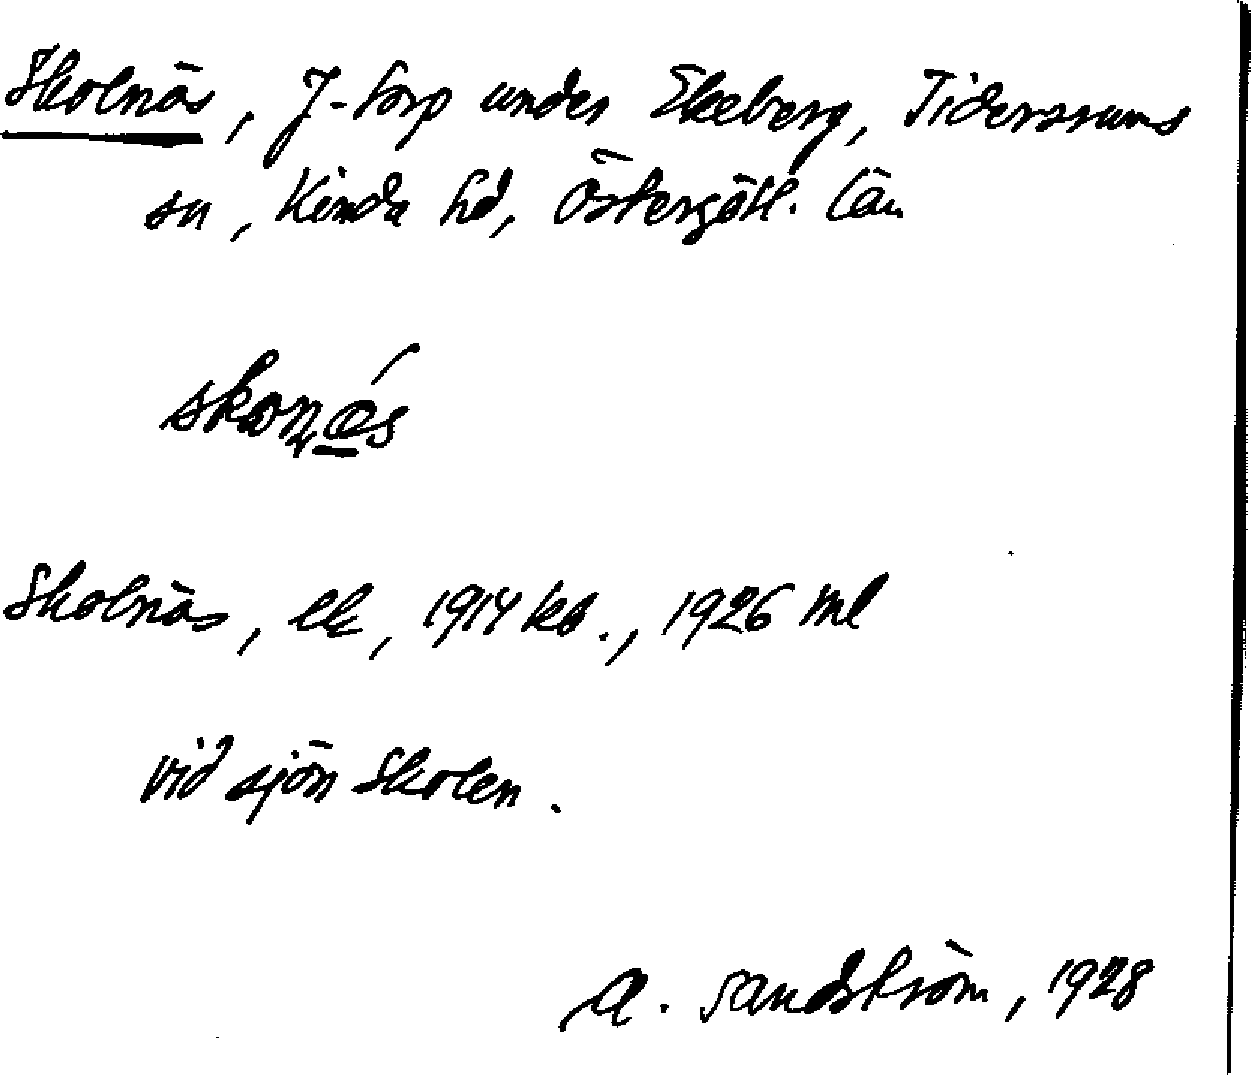 Skolnäs, J-torp under Ekeberg, Tidersrums
sn, Kinda hd, Östergötl. län
Skolnäs, ek, 1914 kb., 1926 ml
vid sjön Skolen.
A. Sandström, 1928